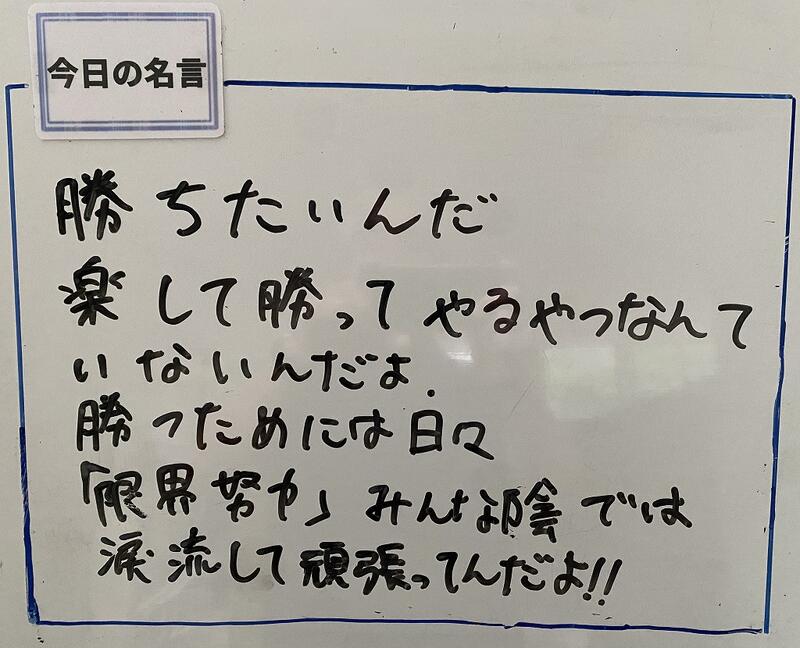 今日の名言
勝ちたいんだ
楽して勝ってやるやつなんて
いないんだよ.
勝つためには日々
「限界努力」みんな陰では
涙流して頑張ってんだよ!!